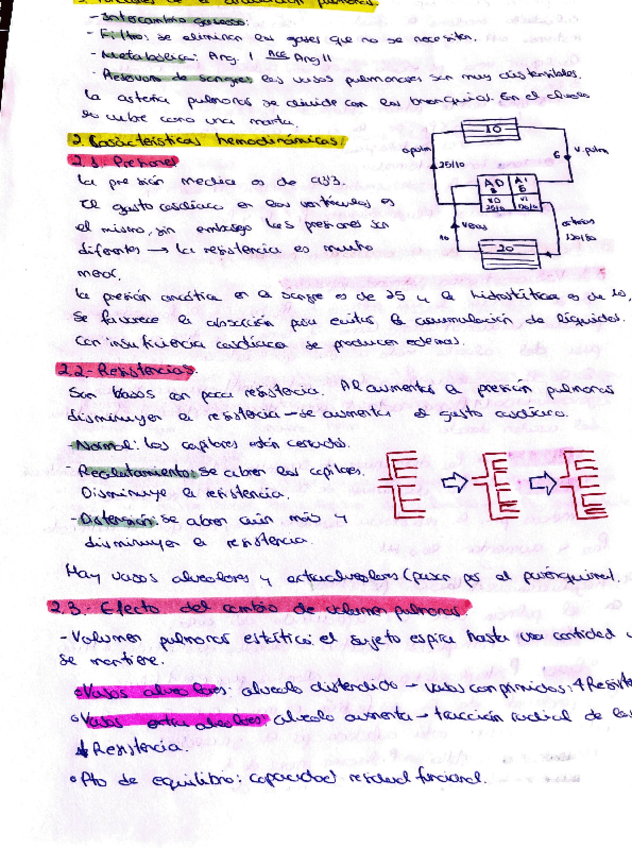 - Intercambio gaseoso:
- Filtro: se eliminan los gases que no se necesitan.
- Metabólica: Ang. I ACE Ang II
- Reservorio de sangre: los vasos pulmonares son muy distensibles.
La arteria pulmonar se divide con los bronquios. En el alveolo
lo cubre como una manta.
2. Características hemodinámicas:
2.1. Presiones
La presión media es de
El gasto cardíaco en los ventrículos es
el mismo, sin embargo las presiones son
diferentes → la resistencia es mucho
menor.
10
a pulm
25/10
6
v. pulm
AD
AI
VD
25/0
VI
venas
arterias
120/80
10
20
La presión oncótica en la sangre es de 25 y la hidrostática es de 10,
se favorece la absorción para evitar la acumulación de líquidos.
Con insuficiencia cardíaca se producen edemas.
2.2.- Resistencias.
Son vasos con poca resistencia. Al aumentar la presión pulmonar
disminuyen la resistencia → se aumenta el gasto cardíaco.
- Normal: los capilares están cerrados.
- Reclutamiento: se abren los capilares.
Disminuye la resistencia.
- Distensión: se abren aún más y
disminuyen la resistencia.
Hay vasos alveolares y extraalveolares (pasan por el parénquima).
2.3.- Efecto del cambio de volumen pulmonar.
- Volumen pulmonar estático: el sujeto espira hasta una cantidad y
se mantiene.
• Vasos alveolares: alveolo distendido → vasos comprimidos: ↑ Resiste
• Vasos extraalveolares: alveolo aumenta → tracción radial de los
↓ Resistencia.
• Pto de equilibrio: capacidad residual funcional.